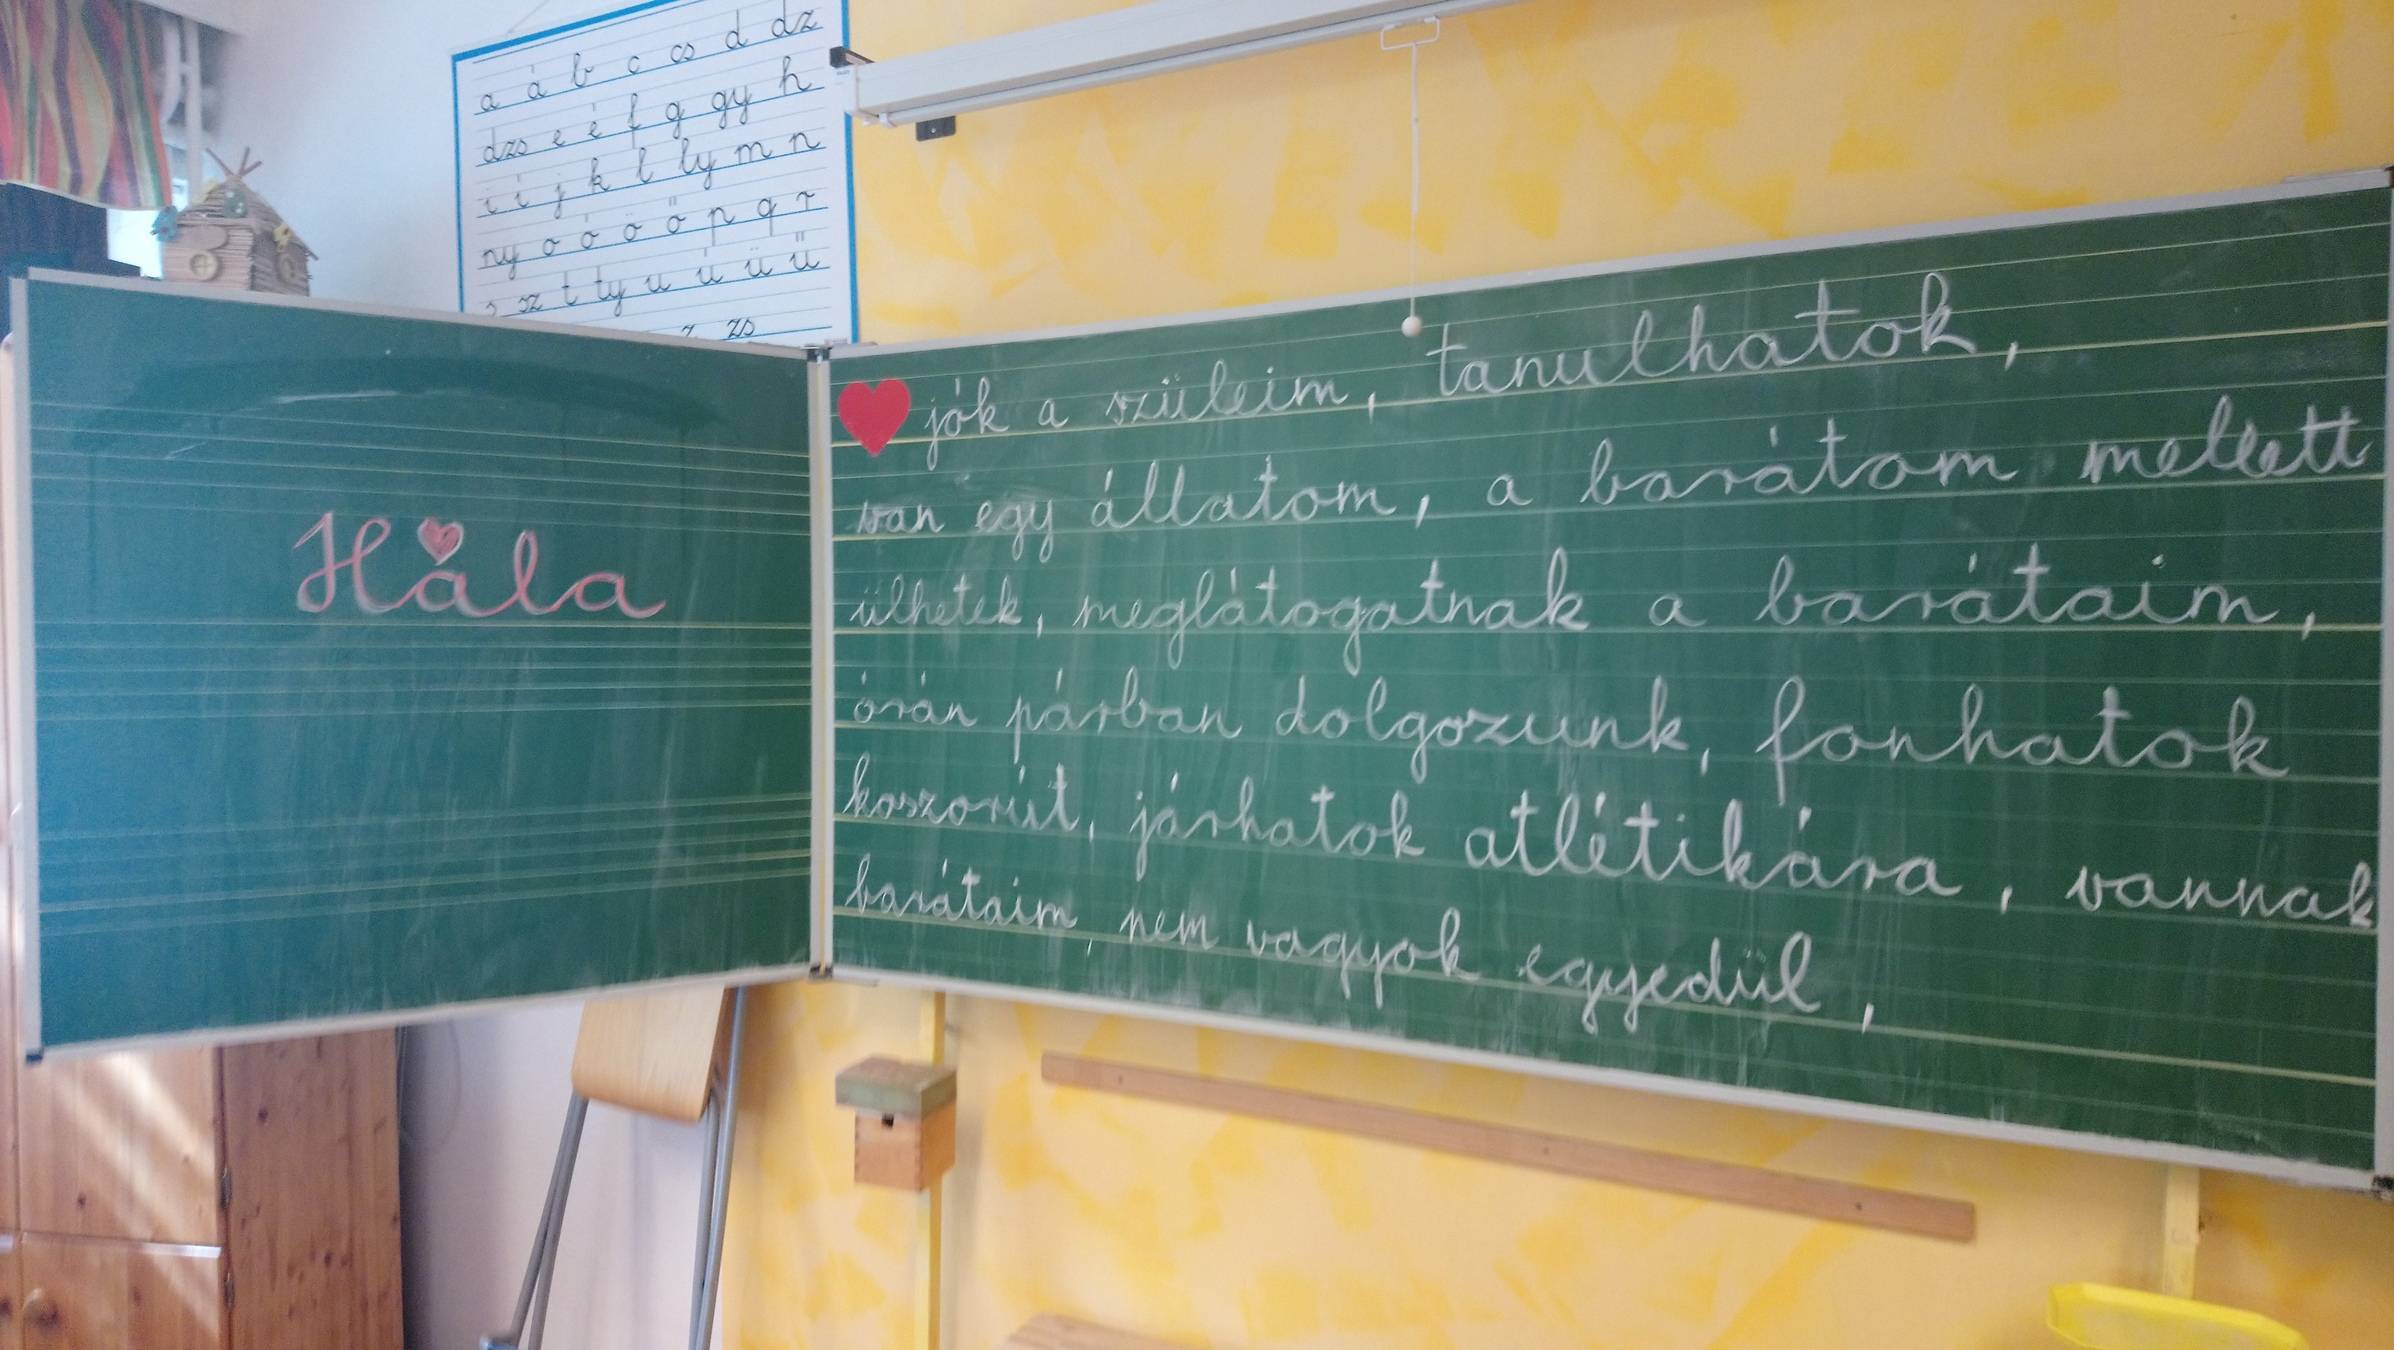 a á b c cs d dz
dzs e é f g gy h
i í j k l ly m n
ny o ó ö ő p q r
s sz t ty u ú ü ű
z zs
Hála
jók a szüleim, tanulhatok,
van egy állatom, a barátom mellett
ülhetek, meglátogatnak a barátaim,
órán párban dolgozunk, fonhatok
koszorút, járhatok atlétikára, vannak
barátaim, nem vagyok egyedül,